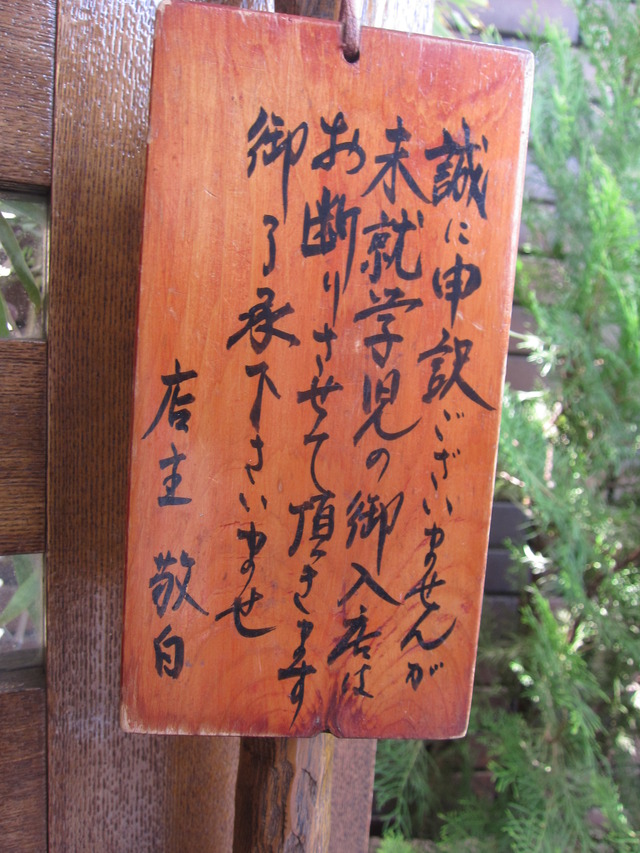 誠に申訳ございませんが
未就学児の御入店は
お断りさせて頂きます
御了承下さいませ
店主 敬白